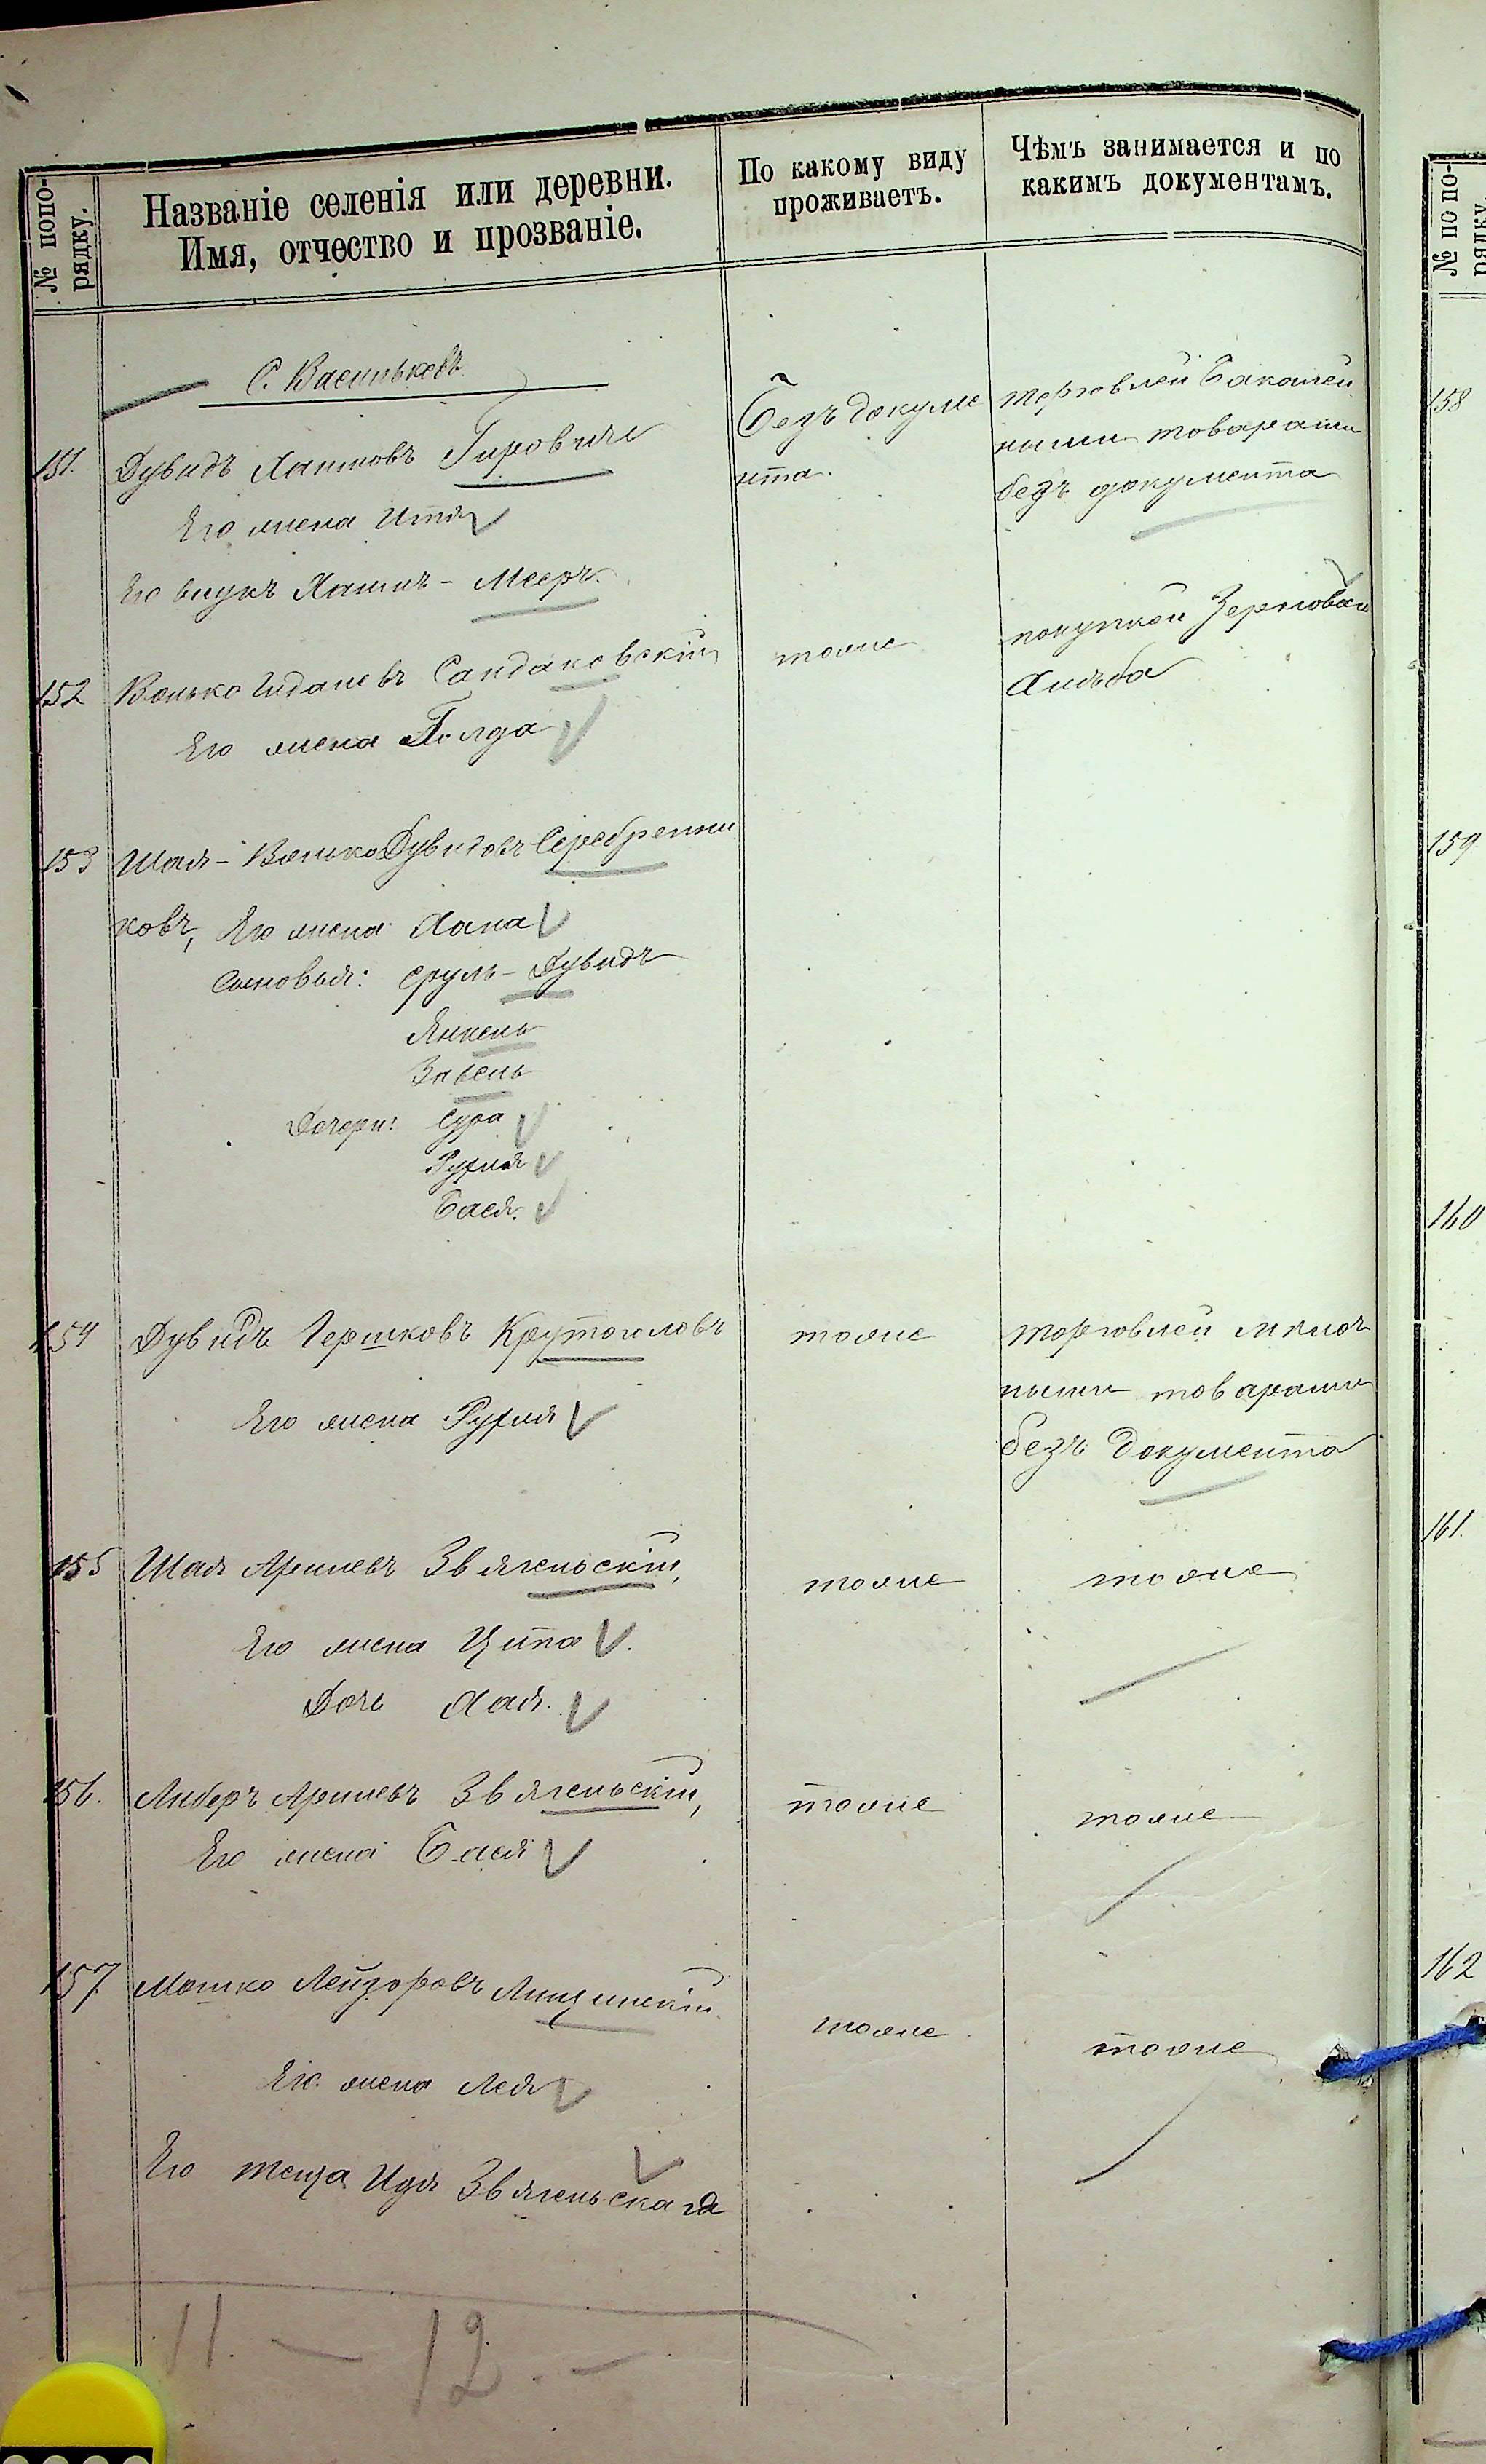 № попо-
рядку.
Названіе селенія или деревни.
Имя, отчество и прозваніе.
По какому виду
проживаетъ.
Чѣмъ занимается и по
какимъ документамъ.
№ по по-
рядку.
С. Васильковъ
151. Дувидъ Хаимовъ Гировичъ
Его жена Итя
Его внукъ Хаимъ - Мееръ.
Безъ докуме
нта.
торговлей бакалей
ными товарами
безъ документа
152 Волько Иданевъ Сандаковскій
Его жена Голда
тоже
покупкой Зерновой
Хлѣба
153 Шая - Волько Дувидовъ Серебренни
ковъ, Его жена Хана
Сыновья: Сруль - Дувидъ
Янкель
Завель
Дочери: Сура
Рухля
Бася.
154 Дувидъ Гершковъ Крутоголовъ
Его жена Рухля
тоже
торговлей мѣлоч
ными товарами
безъ документа
155 Шая Арилевъ Звягельскій,
Его жена Ципа
Дочь Хая.
тоже
тоже
156. Либеръ Арилевъ Звягельскій,
Его жена Бася
тоже
тоже
157 Мошко Лейзоровъ Лищинскій
Его жена Лея
Его теща Идя Звягельская
тоже
тоже
11. - 12. -
158
159
160
161.
162